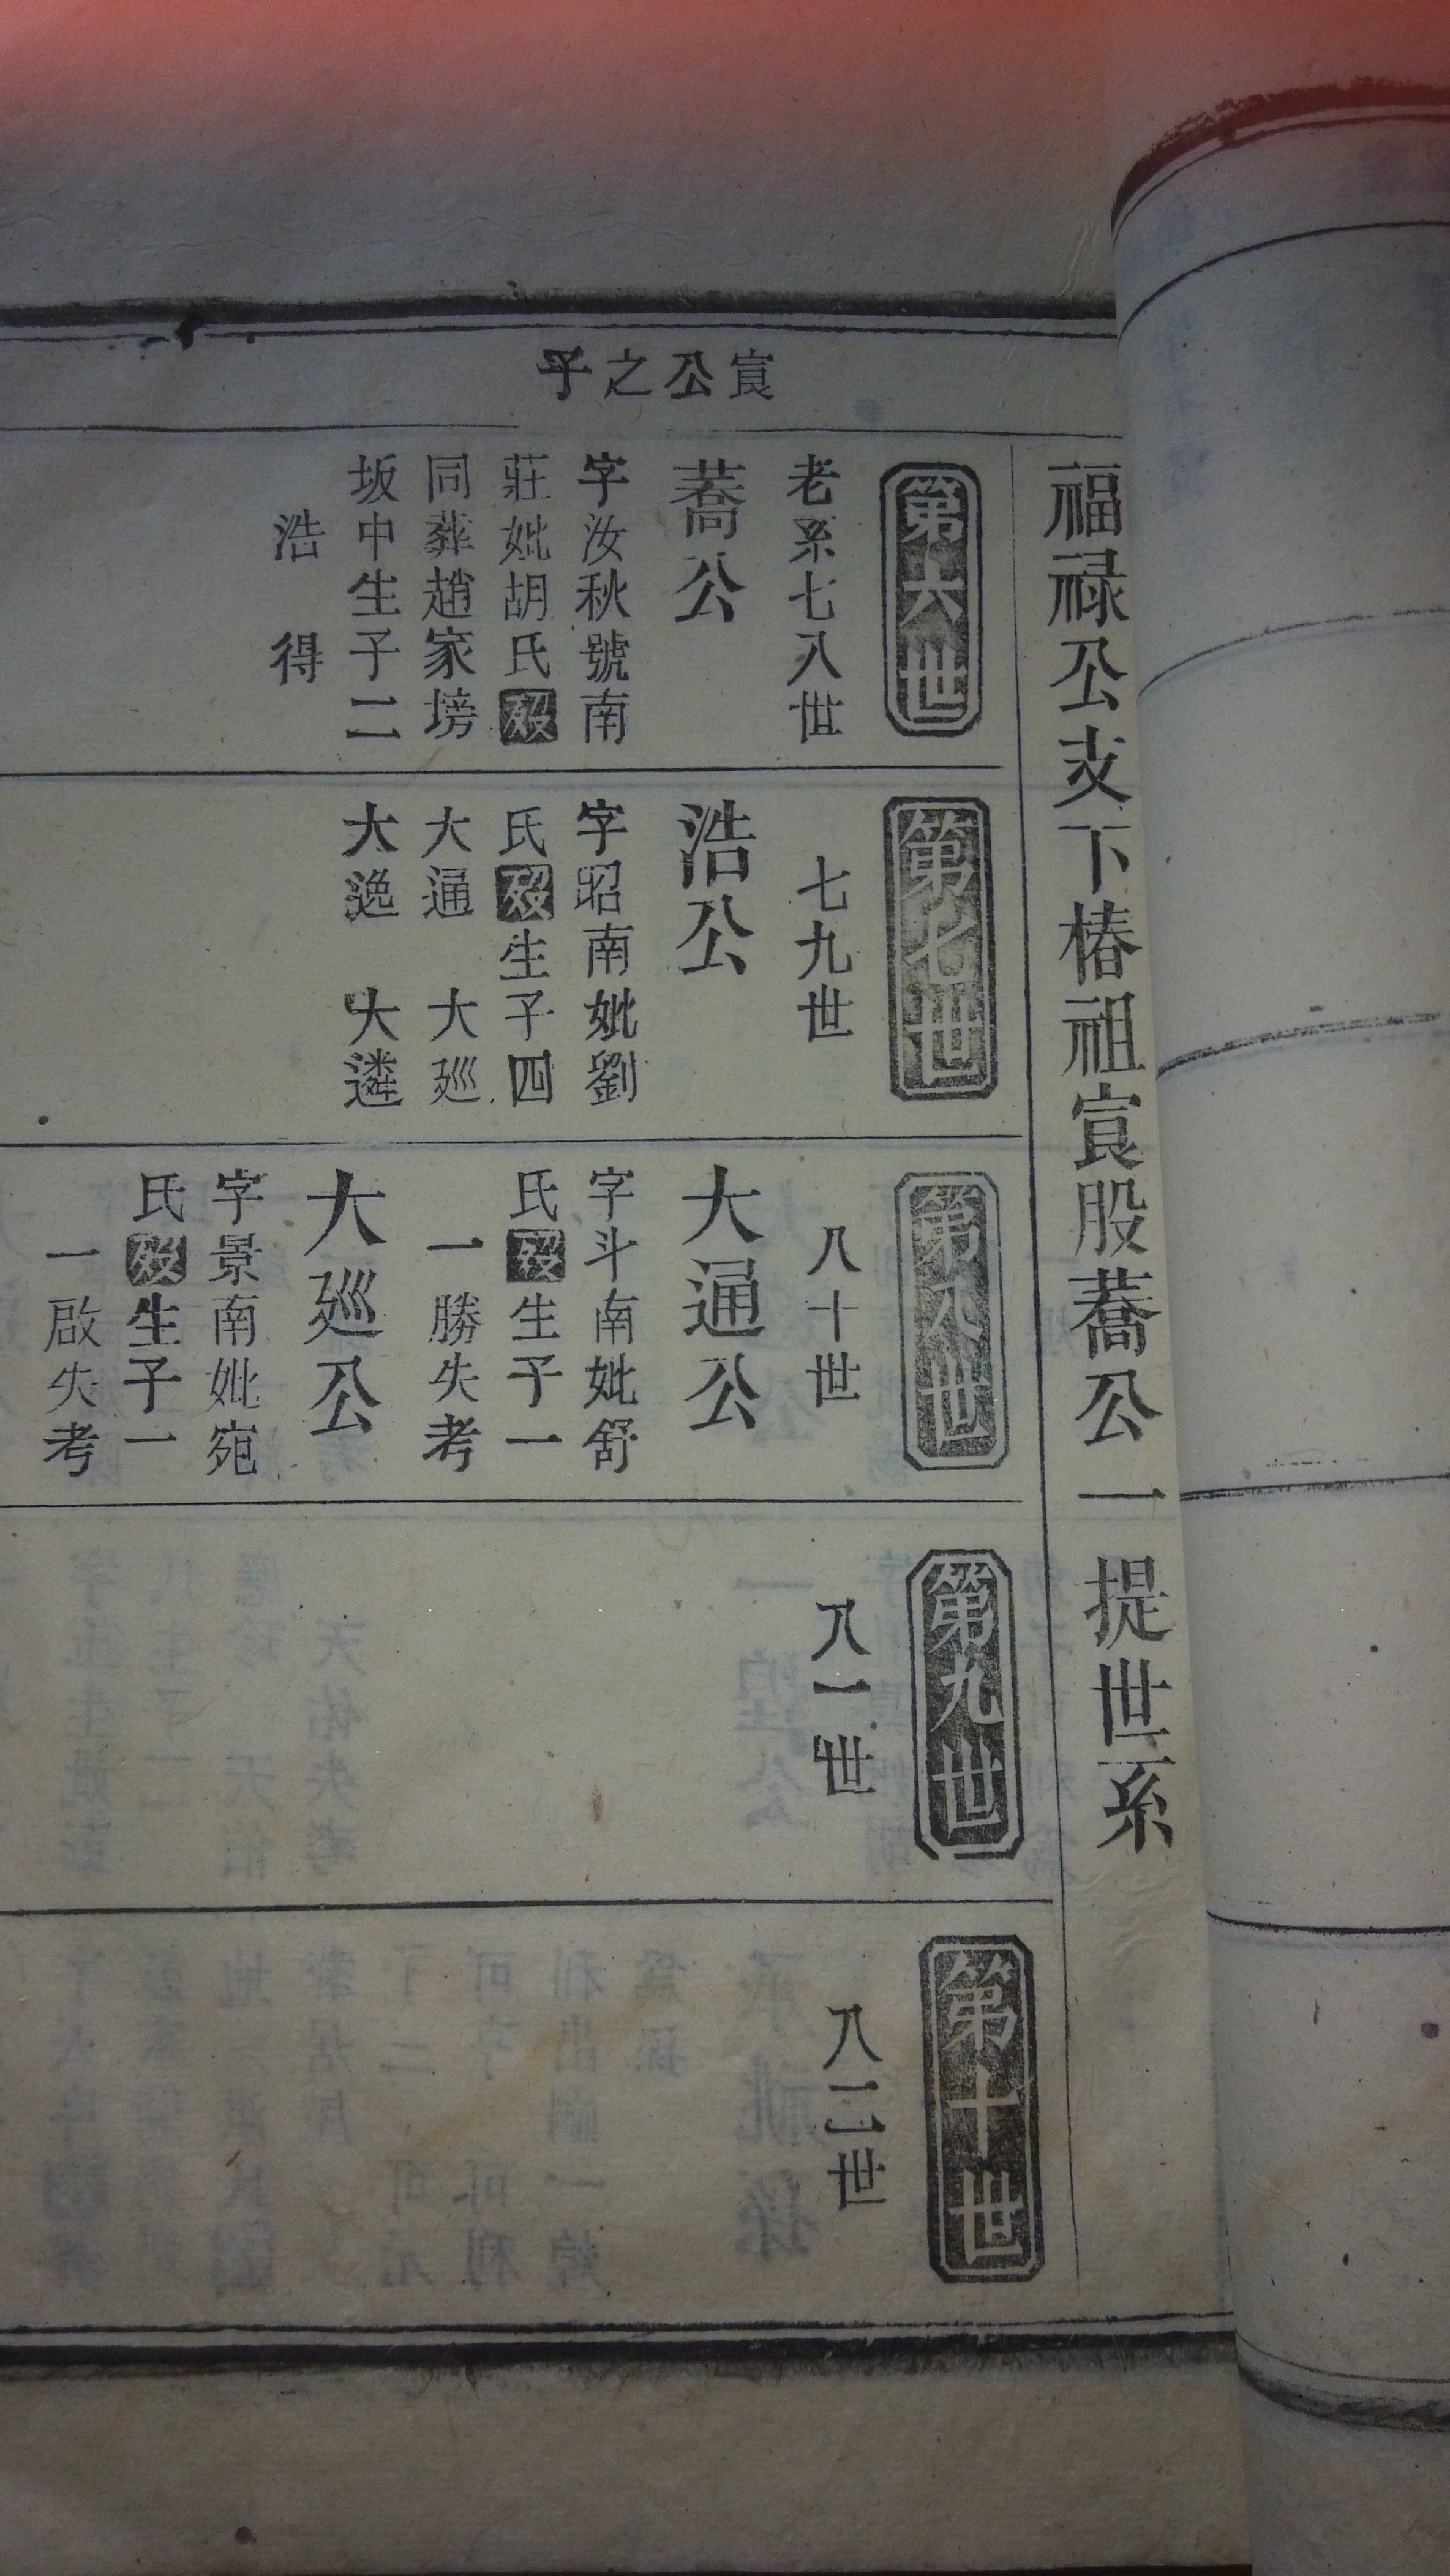 福祿公支下椿祖㝑股蕎公一提世系
㝑公之子
第六世
老系七八世
蕎公
字汝秋號南
莊妣胡氏歿
同葬趙家塝
坂中生子二
浩 得
第七世
七九世
浩公
字昭南妣劉
氏歿生子四
大通 大廵
大逸 大遴
第八世
八十世
大通公
字斗南妣舒
氏歿生子一
一勝失考
大廵公
字景南妣宛
氏歿生子一
一啟失考
第九世
八一世
第十世
八二世